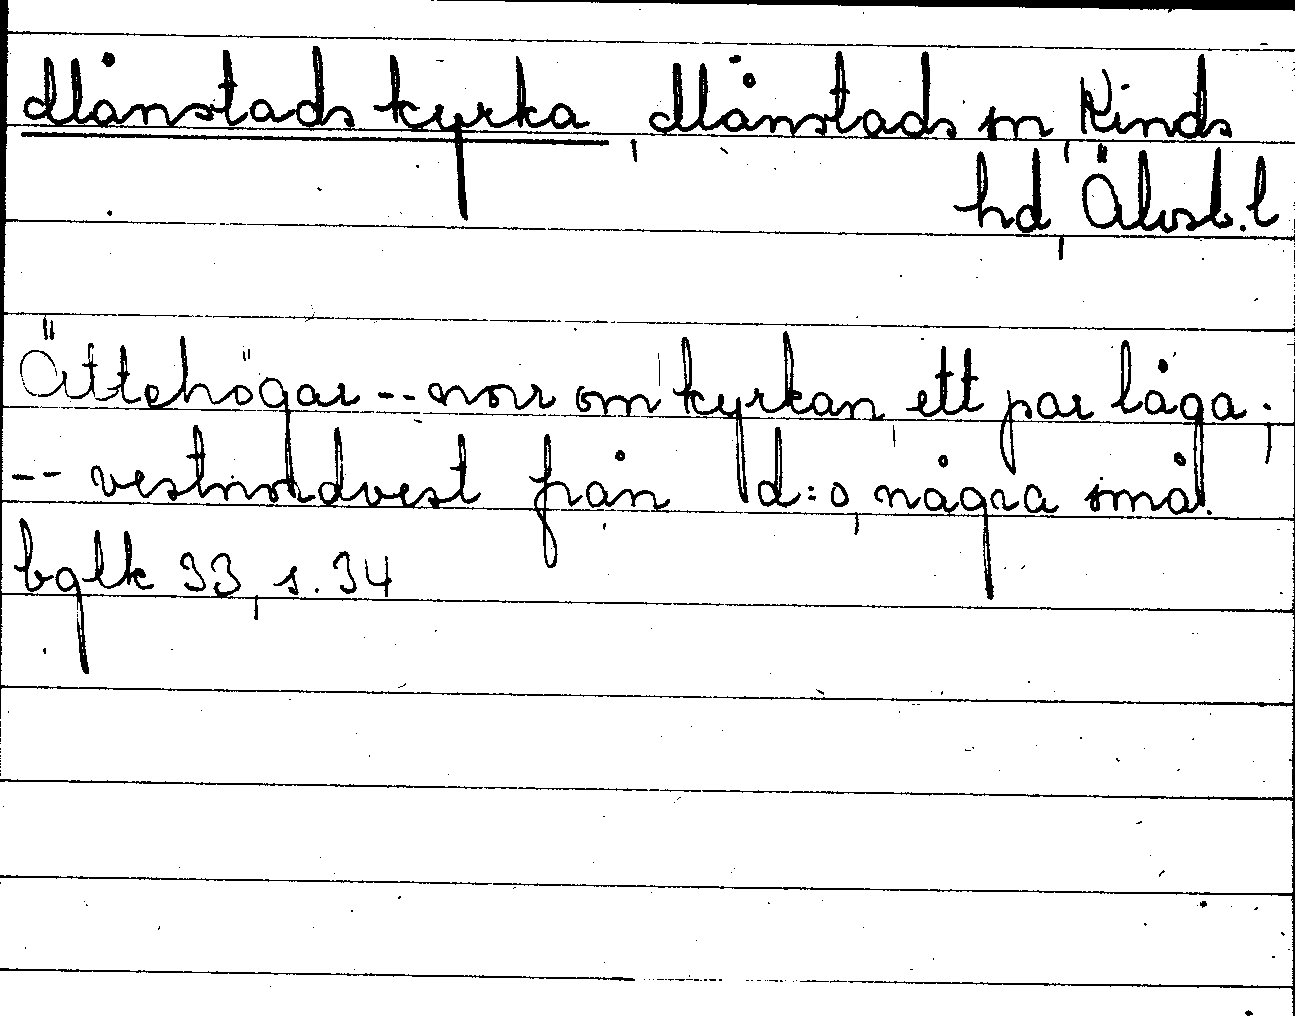 Månstads kyrka, Månstads sn, Kinds
hd, Älvsb.l
Ättehögar -- norr om kyrkan, ett par låga;
-- vestnordvest från d:o, några små.
bglk 33, s. 34